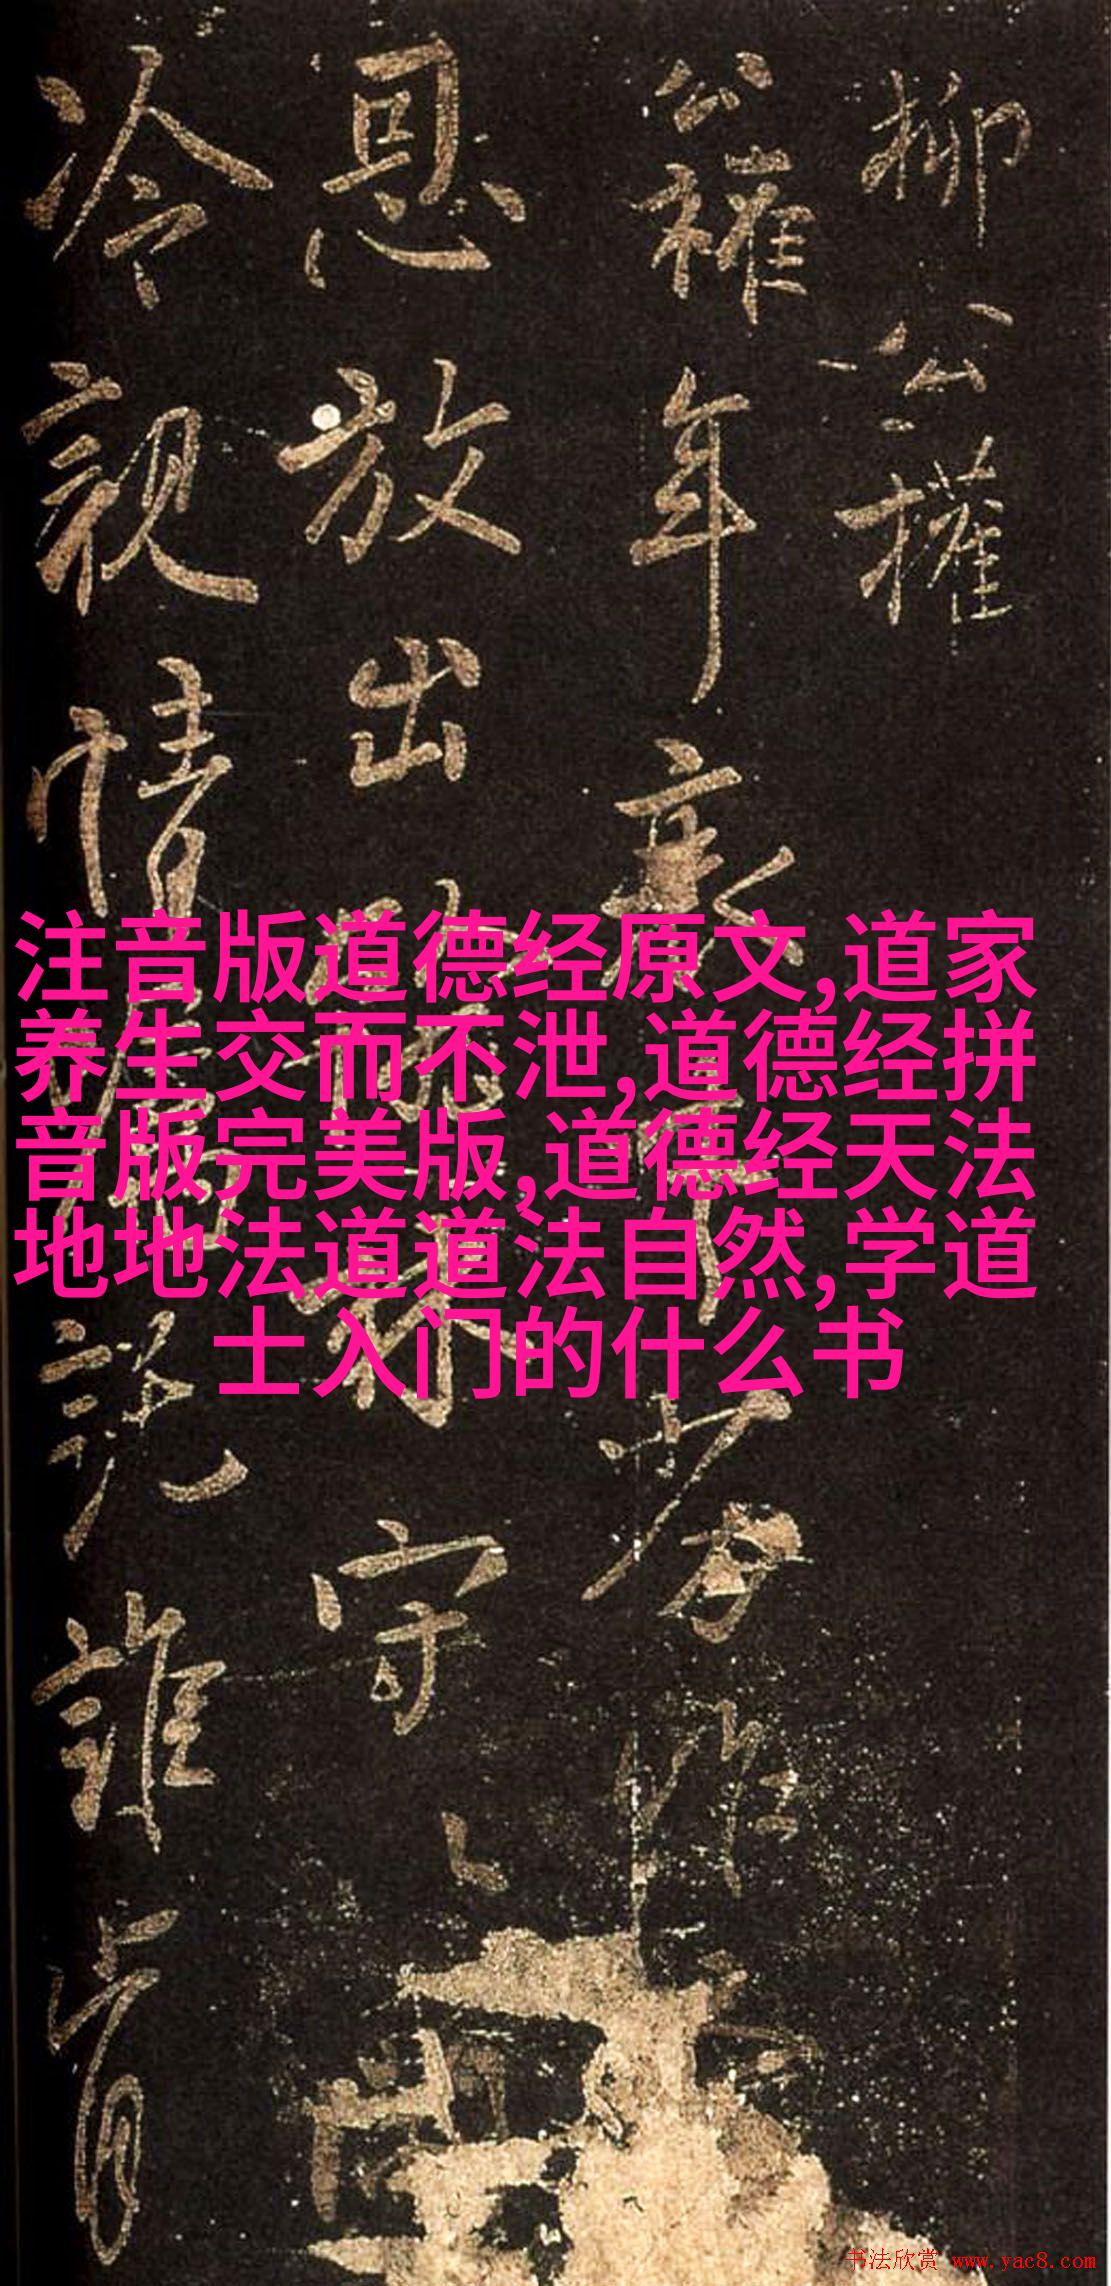 柳公權
公權年衰才劣昨
恩放出翰林守
冷親情嘱託誰肯
注音版道德经原文,道家
养生交而不泄,道德经拼
音版完美版,道德经天法
地地法道道法自然,学道
士入门的什么书
书法欣赏 www.yac8.com